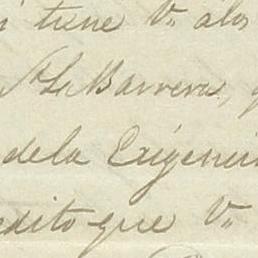 i tiene V. alos
Sr La Barrera,
dela Exigenci
edito que V.